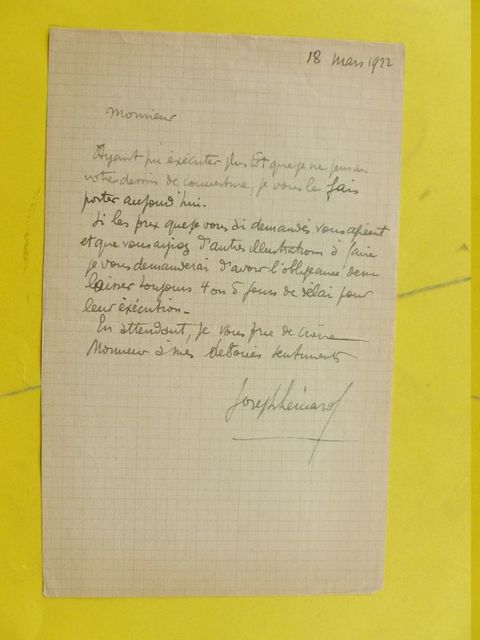 18 mars 1922
Monsieur
Ayant pu exécuter plus tôt que je ne pensais
votre dessin de couverture, je vous le fais
porter aujourd'hui.
Si les prix que je vous ai demandés vous agréent
et que vous ayiez d'autres illustrations à faire
je vous demanderai d'avoir l'obligeance de me
laisser toujours 4 ou 5 jours de délai pour
leur éxécution -
En attendant, je vous prie de croire
Monsieur à mes dévoués sentiments
Joseph Hémard